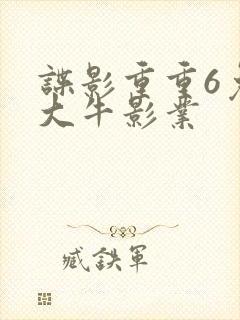 諜影重重6
大牛影業
臧鉄軍